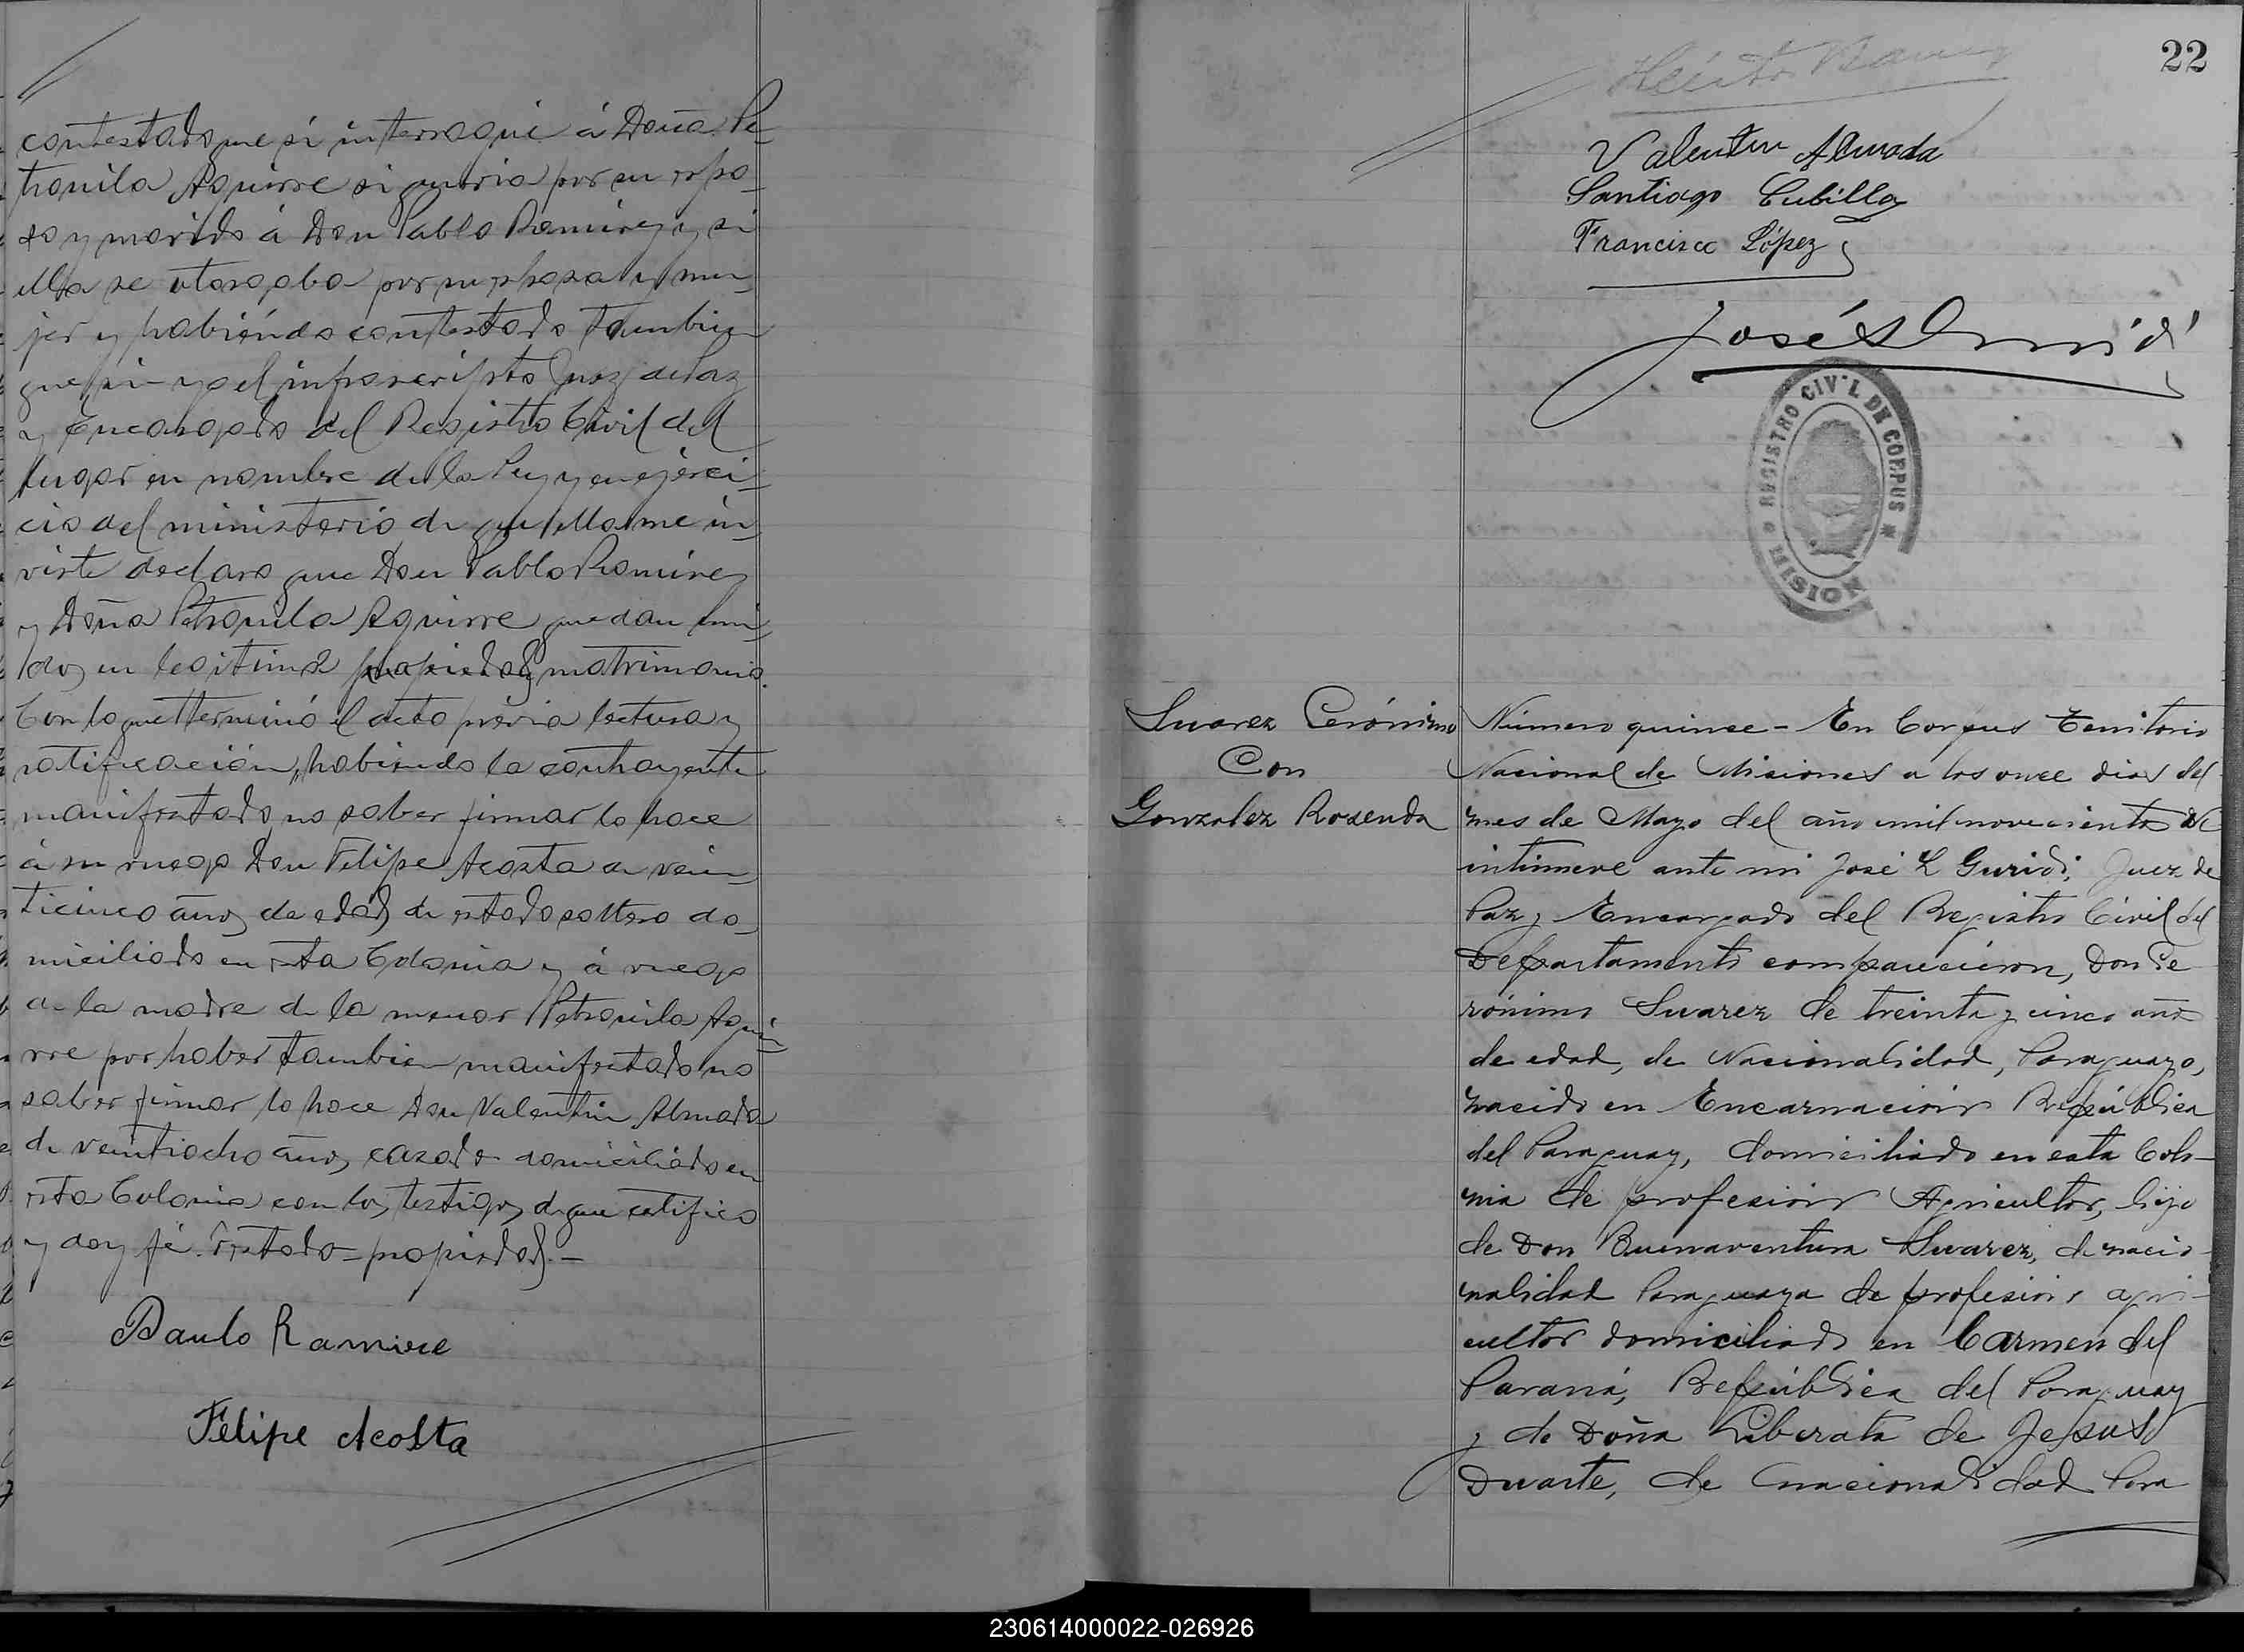 contestado que si interrogué á Doña Pe-
tronila Aguirre si queria por su espo-
so y marido á Don Pablo Ramirez y si
ella se otorgaba por su esposa y mu-
jer y habiendo contestado tambien
que si yo el infrascripto Juez de Paz
y Encargado del Registro Civil del
lugar en nombre de la Ley y en ejerci-
cio del ministerio de que ella me in-
viste declaro que Don Pablo Ramirez
y Doña Petronila Aguirre quedan uni-
dos en legitima propiedad matrimonio.
Con lo que terminó el acto prévia lectura y
ratificación, habiendo la contrayente
manifestado no saber firmar lo hace
á su ruego Don Felipe Acosta de vein-
ticinco años de edad de estado soltero do-
miciliado en esta Colonia y á ruego
de la madre de la menor Petronila Agui-
rre por haber tambien manifestado no
saber firmar lo hace Don Valentin Almada
de veintiocho años, casado domiciliado en
esta Colonia con los testigos de que certifico
y doy fé. Testado - propiedad. -
Paulo Ramire
Felipe Acosta
22
Valentin Almada
Santiago Cubilla
Francisco López
REGISTRO CIVIL DE CORPUS
MISION
Suarez Cerónimo
Con
Gonzalez Rosenda
Número quince - En Corpus Territorio
Nacional de Misiones a los once dias del
mes de Mayo del año mil novecientos ve
intinueve ante mi José L Guridi, Juez de
Paz y Encargado del Registro Civil del
Departamento comparecieron, Don Ce
rónimo Suarez de treinta y cinco años
de edad, de Nacionalidad, Paraguayo,
nacido en Encarnación República
del Paraguay, domiciliado en esta Colo-
nia de profesión Agricultor, hijo
de Don Buenaventura Suarez, de nacio-
nalidad Paraguaya de profesión agri-
cultor domiciliado en Carmen del
Paraná, República del Paraguay
y de Doña Liberata de Jesus
Duarte, de nacionalidad Para
230614000022-026926